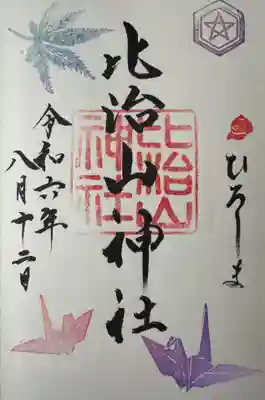 ひろしま
比治山神社
比治山
神社
令和六年
八月十二日